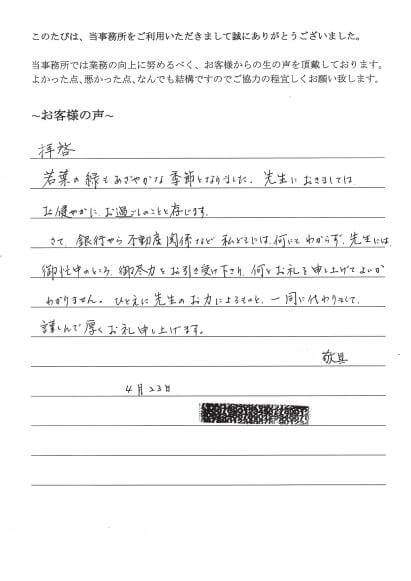 このたびは、当事務所をご利用いただきまして誠にありがとうございました。
当事務所では業務の向上に努めるべく、お客様からの生の声を頂戴しております。
よかった点、悪かった点、なんでも結構ですのでご協力の程宜しくお願い致します。
～お客様の声～
拝啓
若葉の緑もあざやかな季節となりました。先生におきましては
お健やかに、お過ごしのことと存じます。
さて、銀行やら不動産関係など私どもには、何にもわからず、先生には、
御忙中のところ、御尽力をお引き受け下さり、何とお礼を申し上げてよいか
わかりません。ひとえに先生のお力によるものと、一同に代わりまして、
謹しんで厚くお礼申し上げます。
敬具
4月23日